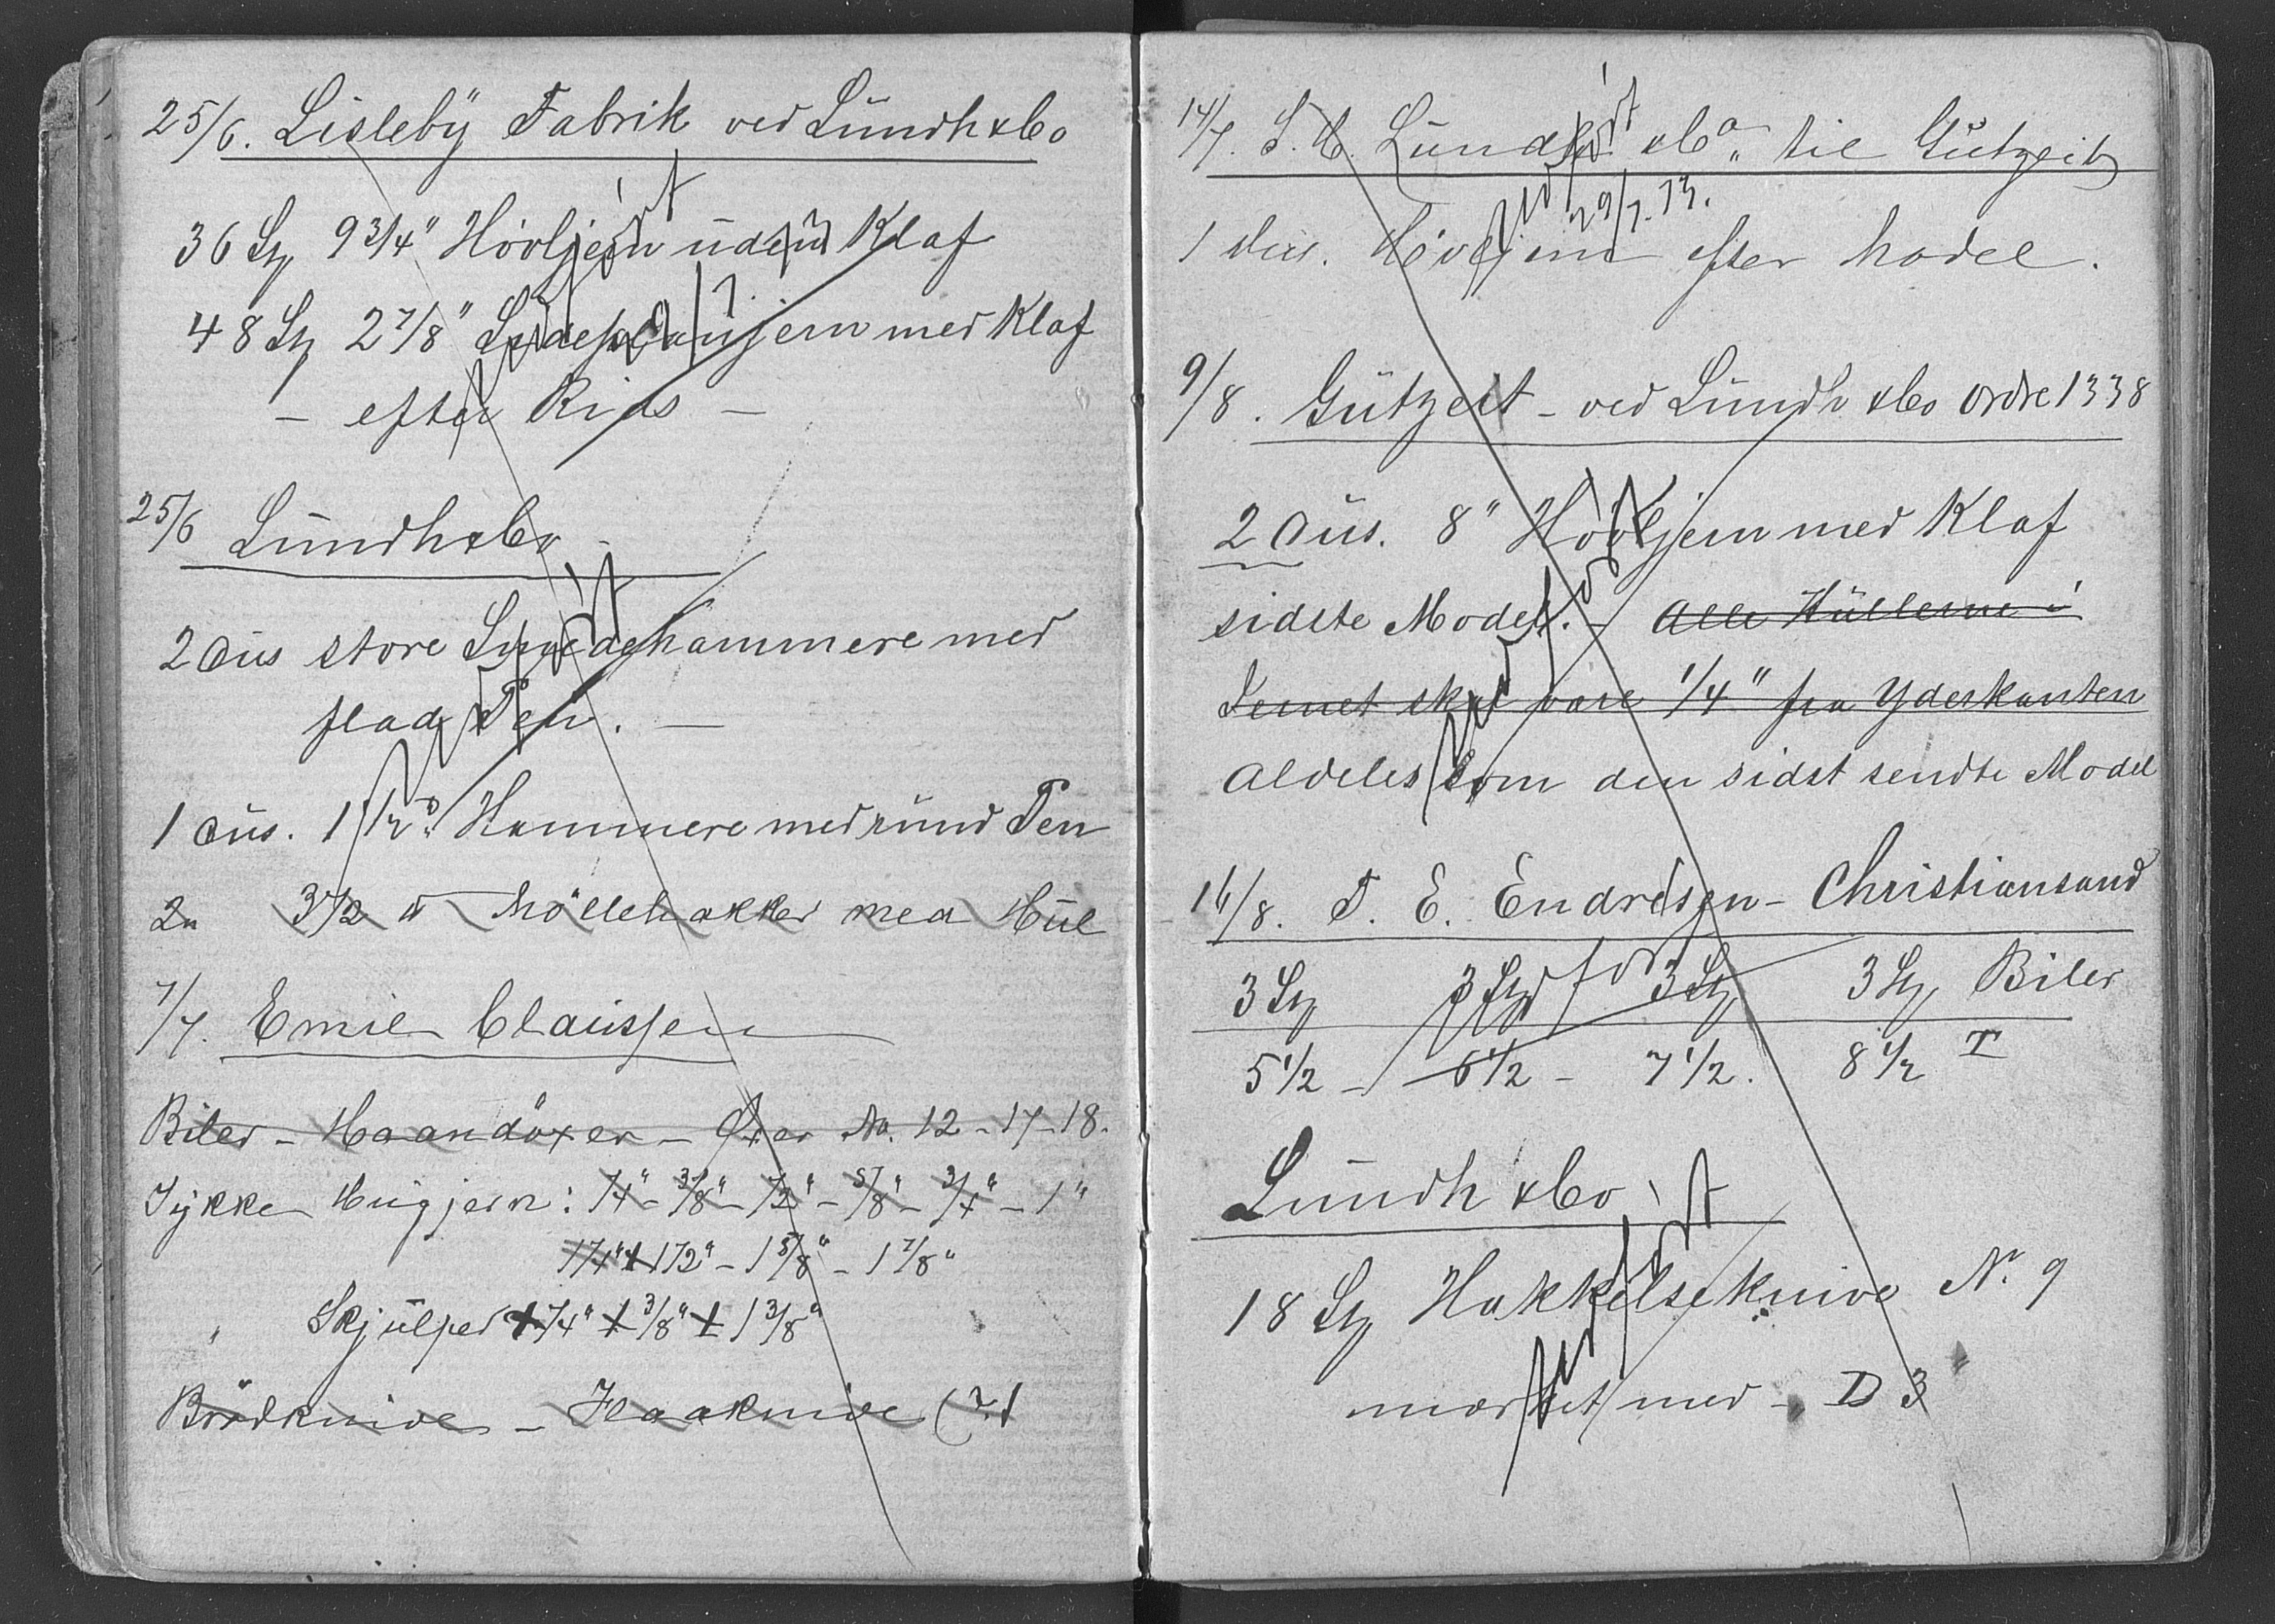 25/6. Lisleby Fabrik ved Lundh & Co
36 St 9 3/4" Hövljern uden Klaf
48 St 2 7/8" jern med Klaf
— efter Rids —
25/6 Lundh & Co —
2 Dus store Smedehammere med
flad Pen. —
1 Dus. 1 1/2 Hammere med rund Pen
2 " 3 1/2 Möllehakker med Hul
7/7. Emil Claussen
Biler - Haandöxer - Öxer No. 12 - 17 - 18.
Tykke Hugjern: 1/4" - 3/8" - 1/2" - 5/8" - 3/4" - 1"
1 1/4" 1 1/2" - 1 5/8" - 1 7/8"
" Skjulper 1/4" 3/8" 1 3/8"
Brödknive - Flaaknive (?)
14/7. S. H. Lundh & Co til Gutzeit
29/7. 13.
1 dus. Hövljern efter Model.
9/8. Gutzeit - ved Lundh & Co Ordre 1338
2 Dus. 8" Hövljern med Klaf
sidste Model. - Alle Hullerne i
Jernet skal være 1/4" fra Yderkanten
Aldeles som den sidst sendte Model
16/8. T. E. Endresen - Christiansand
3 St 3 St 3 St 3 St Biler
5 1/2 - 6 1/2 - 7 1/2. 8 1/2 T
Lundh & Co
18 St Hakkelseknive No. 9
mærket med - D 3